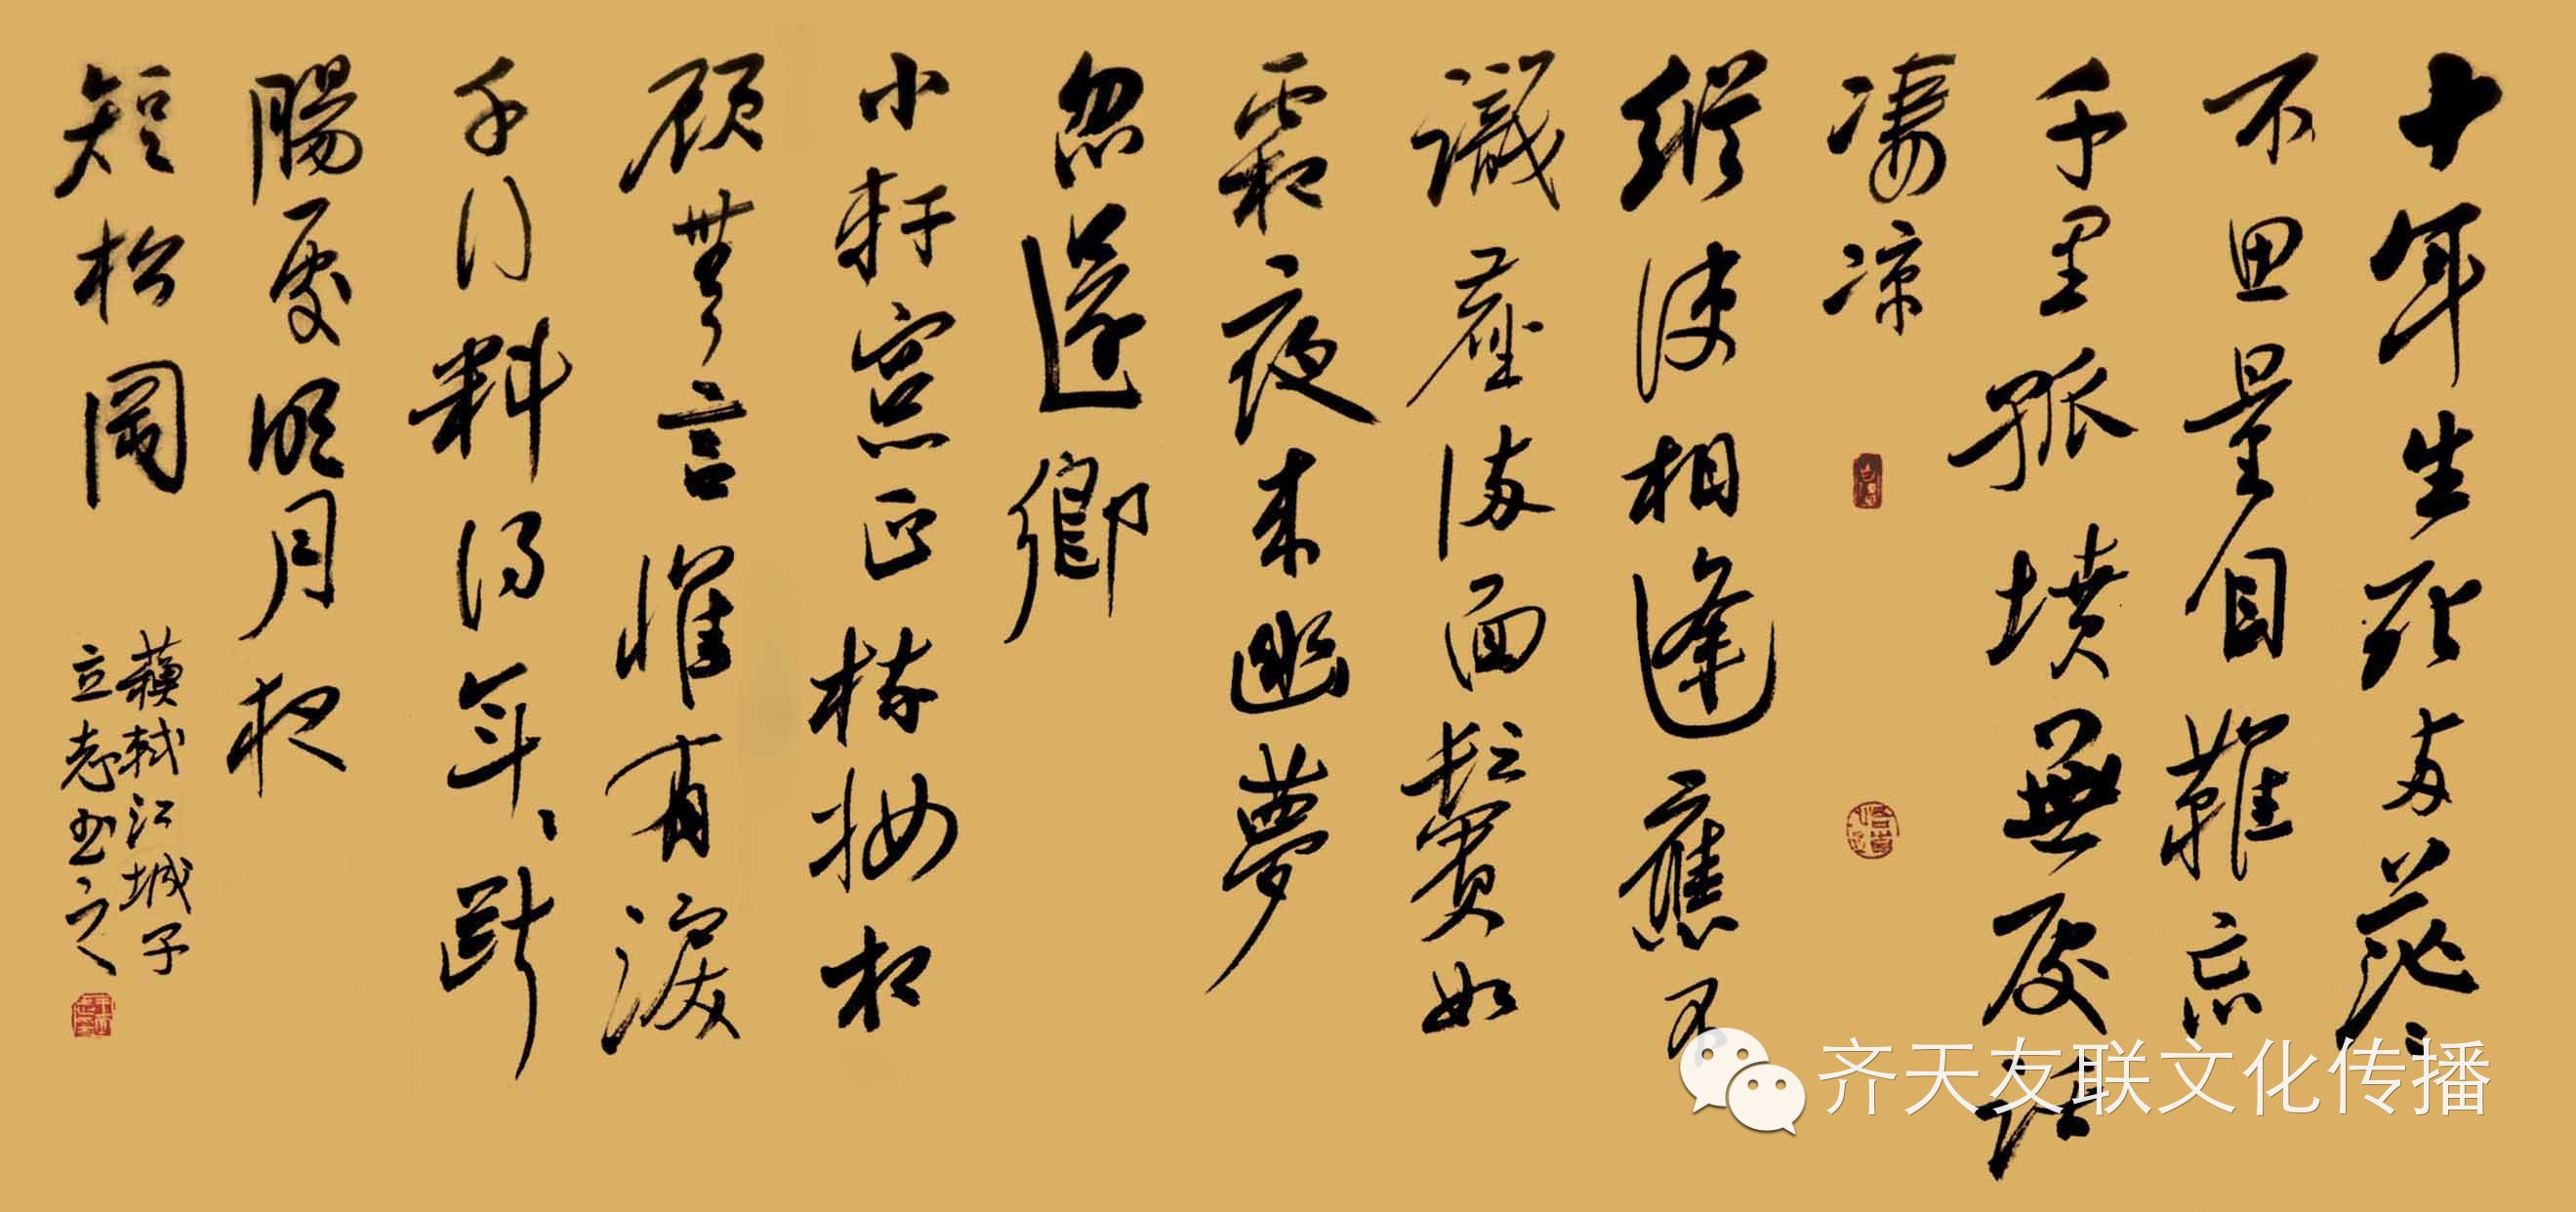 十年生死两茫茫
不思量自難忘
千里孤墳無處話
凄凉
縱使相逢應不
識塵满面鬓如
霜夜来幽夢
忽還鄉
小軒窓正梳妝相
顧無言惟有淚
千行料得年年斷
腸處明月夜
短松岡
蘇軾江城子
立志书之
齐天友联文化传播